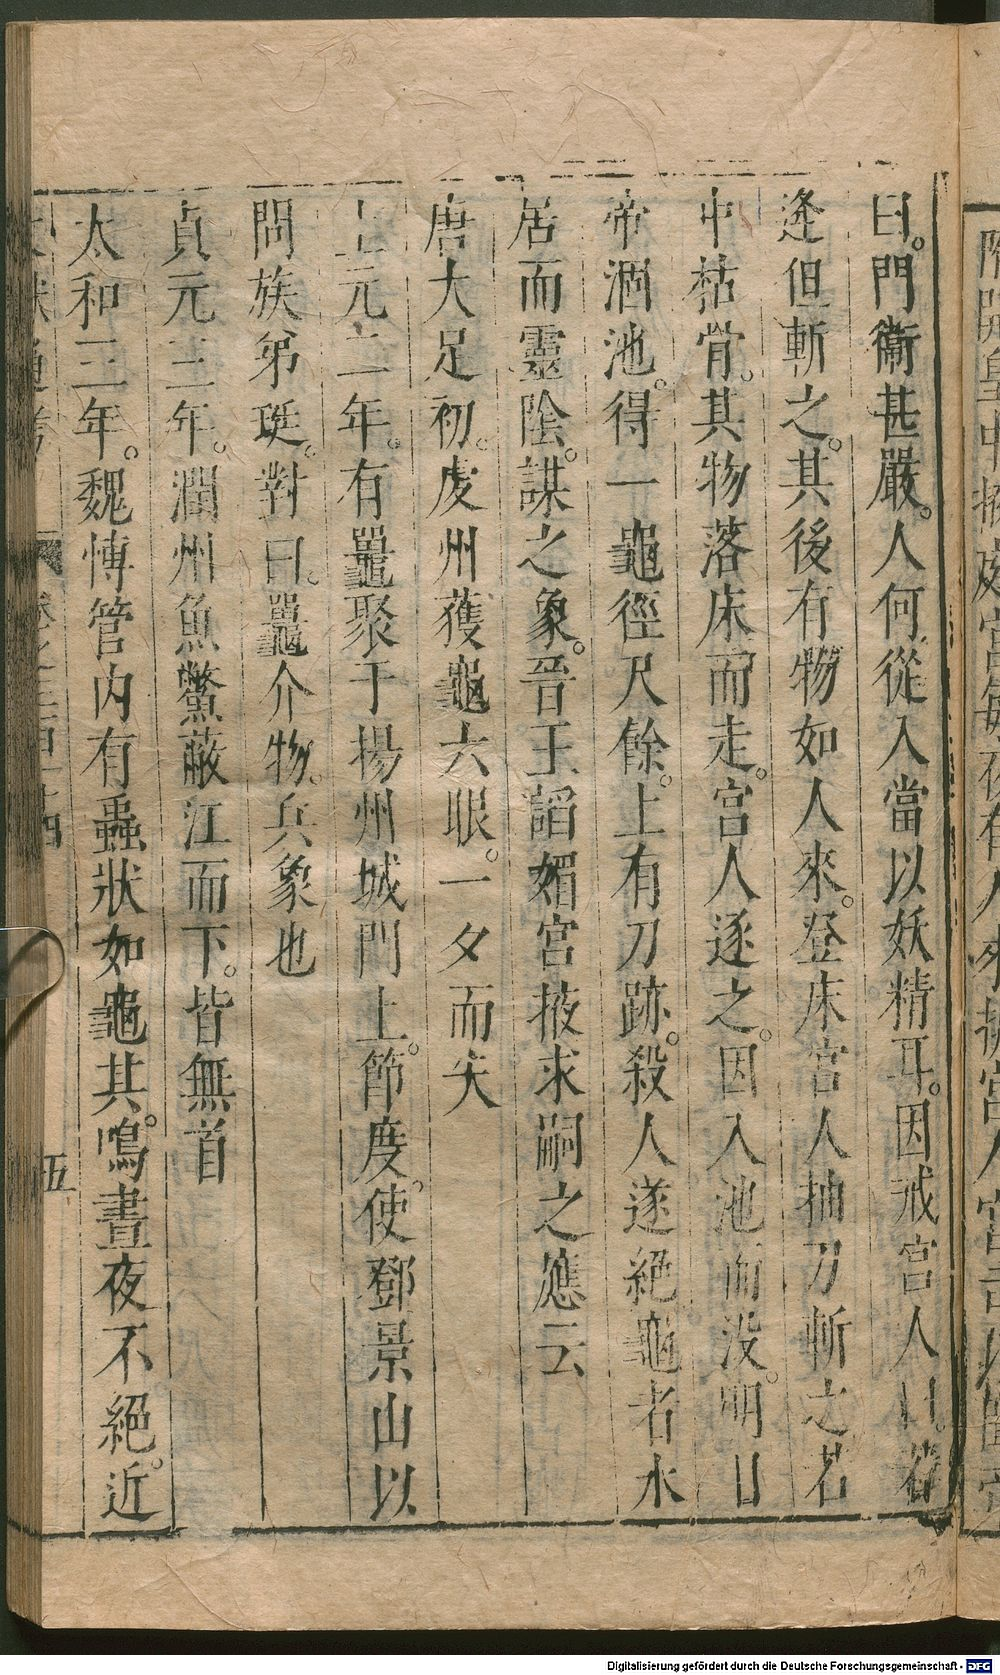 曰。門衞甚嚴。人何從入當以妖精耳。因戒宮人曰。若
逢但斬之。其後有物如人來。登床宮人抽刀斬之若
中枯骨。其物落床而走。宮人逐之。因入池而没。明日
帝涸池。得一龜徑尺餘。上有刀跡。殺人遂絕龜者水
居而靈陰。謀之象。晉王謟媚宮掖求嗣之應云
唐大足初。虔州獲龜六眼。一夕而失
上元二年。有鼉聚于揚州城門上。節度。使鄧景山以
問族弟珽。對曰。鼉介物。兵象也
貞元三年。潤州魚鱉蔽江而下。皆無首
太和三年。魏博管内有蟲狀如龜其。鳴晝夜不絕。近
卷之三百十四
五
Digitalisierung gefördert durch die Deutsche Forschungsgemeinschaft - DFG